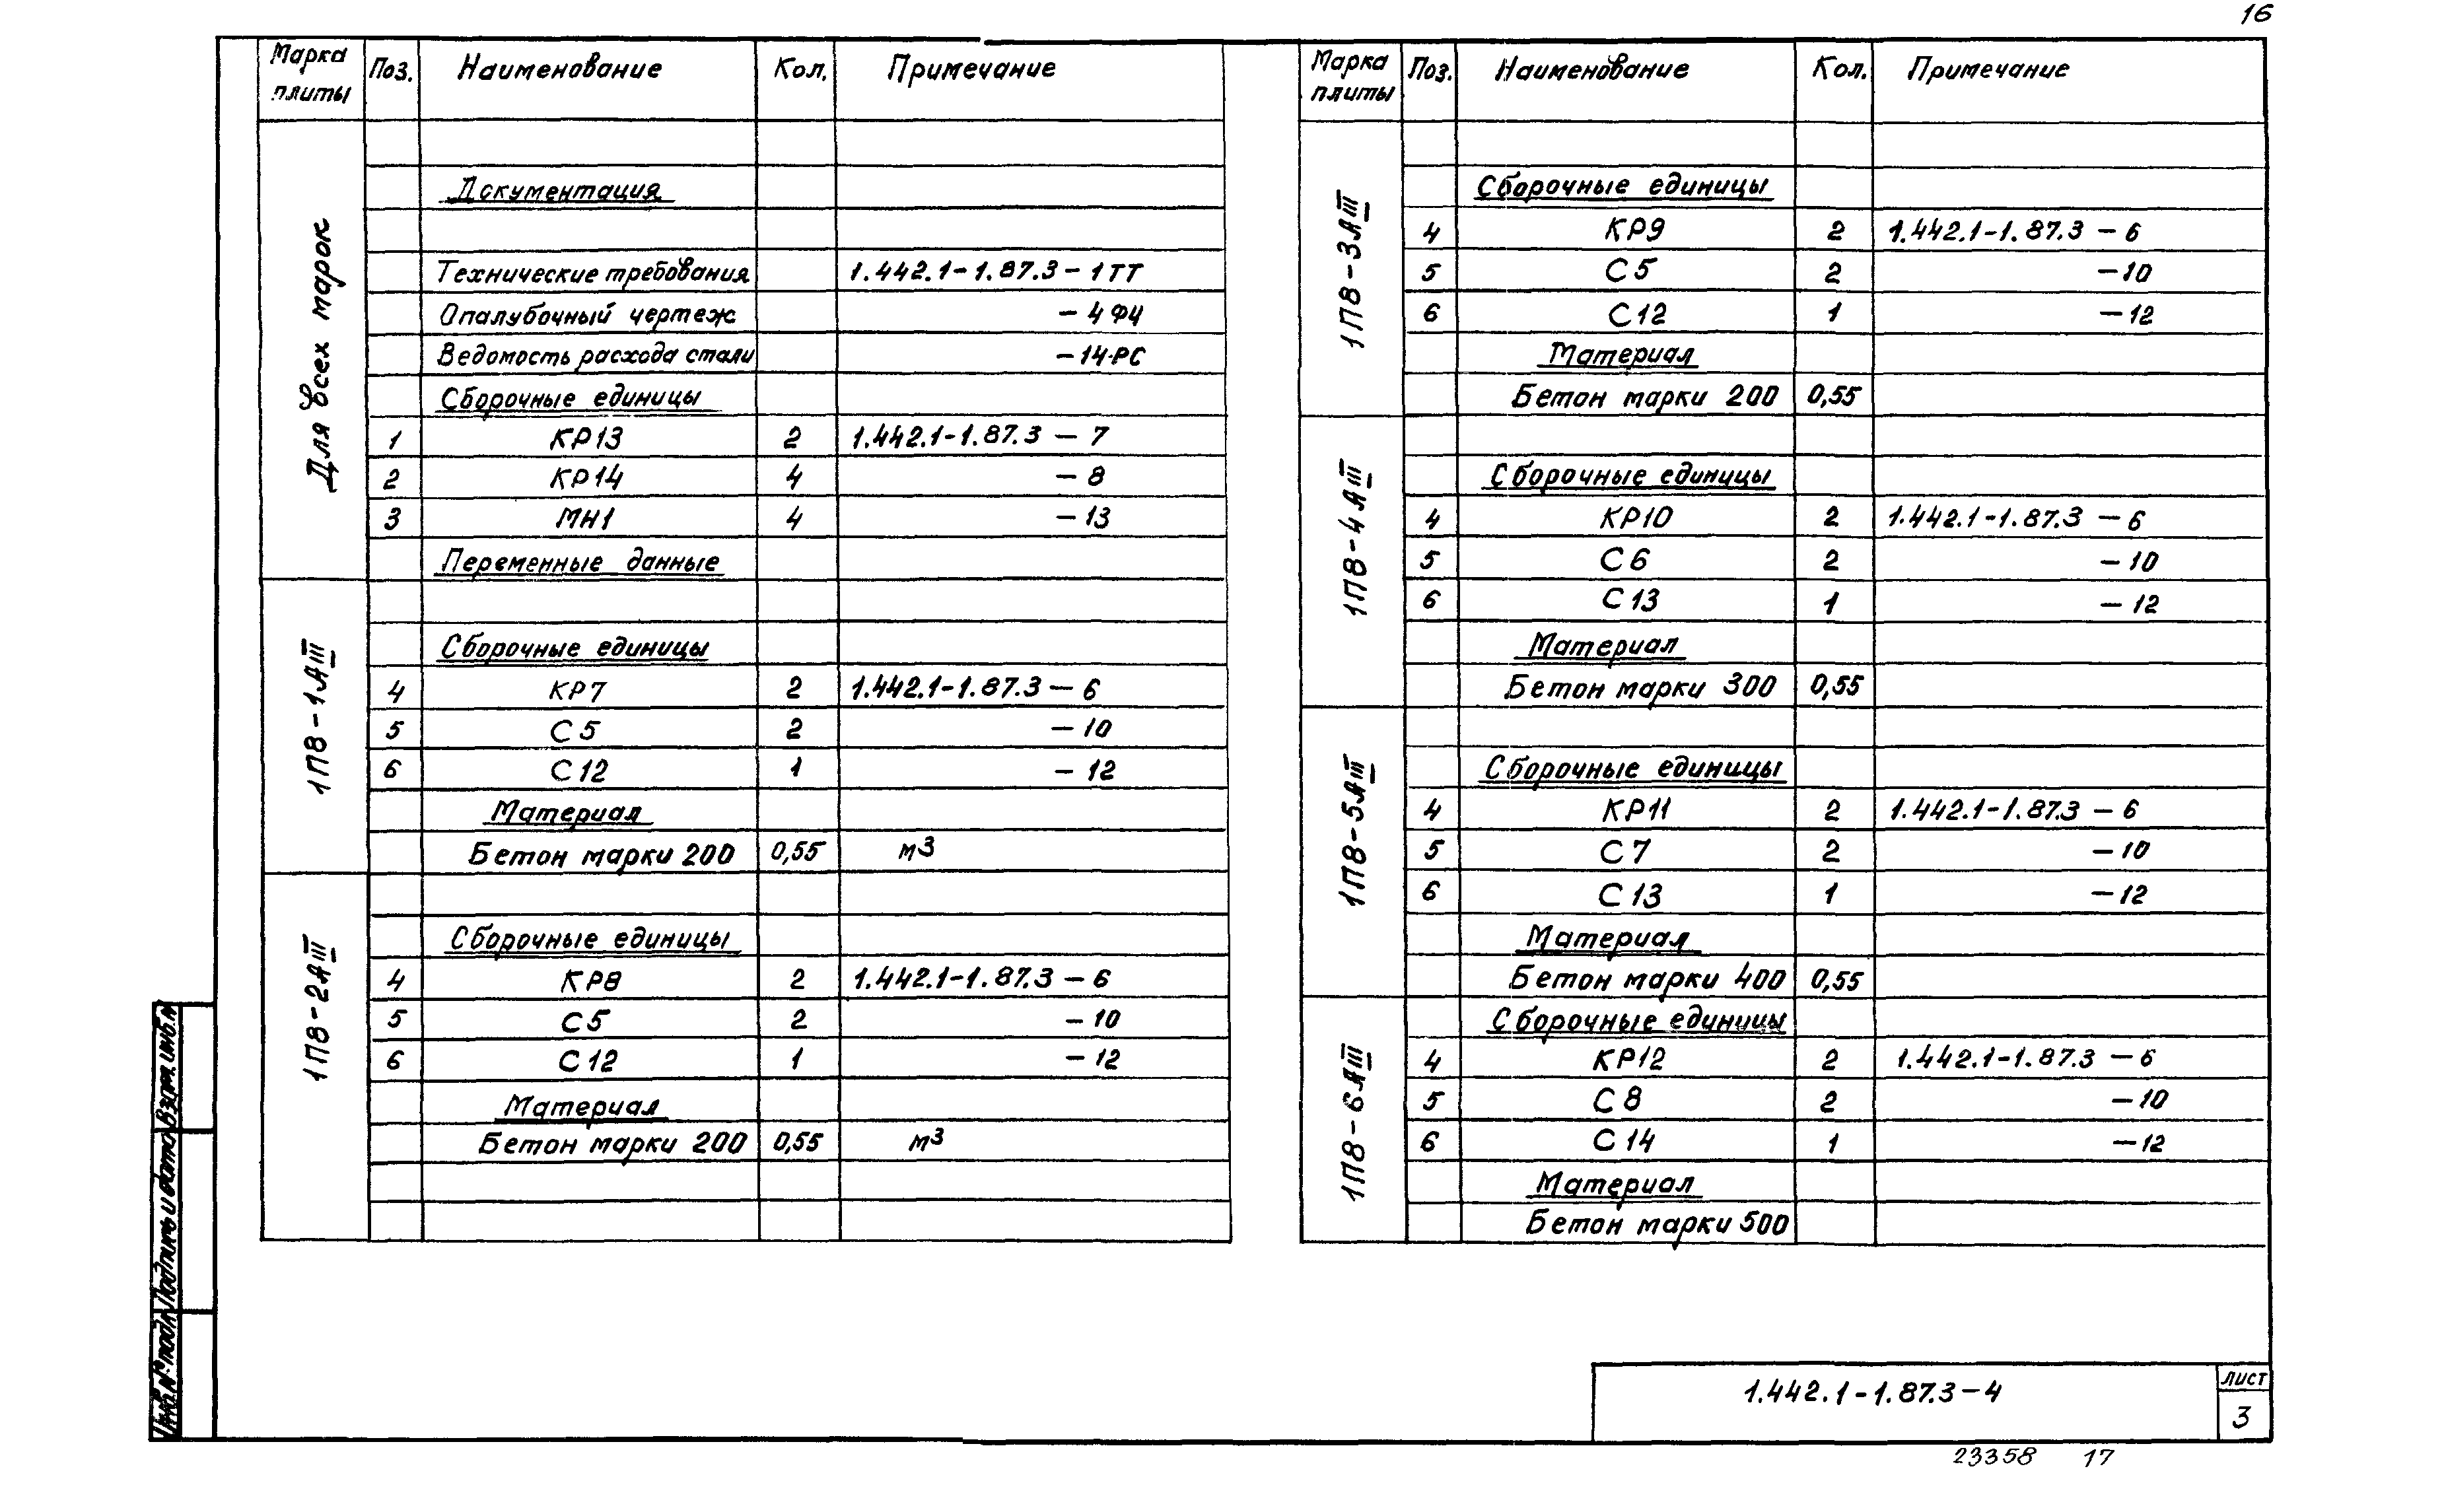 16
Марка плиты Поз. Наименование Кол. Примечание
Для всех марок
Документация
Технические требования 1.442.1-1.87.3-1ТТ
Опалубочный чертеж -4ФЧ
Ведомость расхода стали -14-РС
Сборочные единицы
1 КР13 2 1.442.1-1.87.3-7
2 КР14 4 -8
3 МН1 4 -13
Переменные данные
1П8-1АIII
Сборочные единицы
4 КР7 2 1.442.1-1.87.3-6
5 С5 2 -10
6 С12 1 -12
Материал
Бетон марки 200 0,55 м3
1П8-2АIII
Сборочные единицы
4 КР8 2 1.442.1-1.87.3-6
5 С5 2 -10
6 С12 1 -12
Материал
Бетон марки 200 0,55 м3
Марка плиты Поз. Наименование Кол. Примечание
1П8-3АIII
Сборочные единицы
4 КР9 2 1.442.1-1.87.3-6
5 С5 2 -10
6 С12 1 -12
Материал
Бетон марки 200 0,55
1П8-4АIII
Сборочные единицы
4 КР10 2 1.442.1-1.87.3-6
5 С6 2 -10
6 С13 1 -12
Материал
Бетон марки 300 0,55
1П8-5АIII
Сборочные единицы
4 КР11 2 1.442.1-1.87.3-6
5 С7 2 -10
6 С13 1 -12
Материал
Бетон марки 400 0,55
1П8-6АIII
Сборочные единицы
4 КР12 2 1.442.1-1.87.3-6
5 С8 2 -10
6 С14 1 -12
Материал
Бетон марки 500
Взам. инв.№
Подпись и дата
Инв.№ подл.
1.442.1-1.87.3-4
лист
3
23358 17